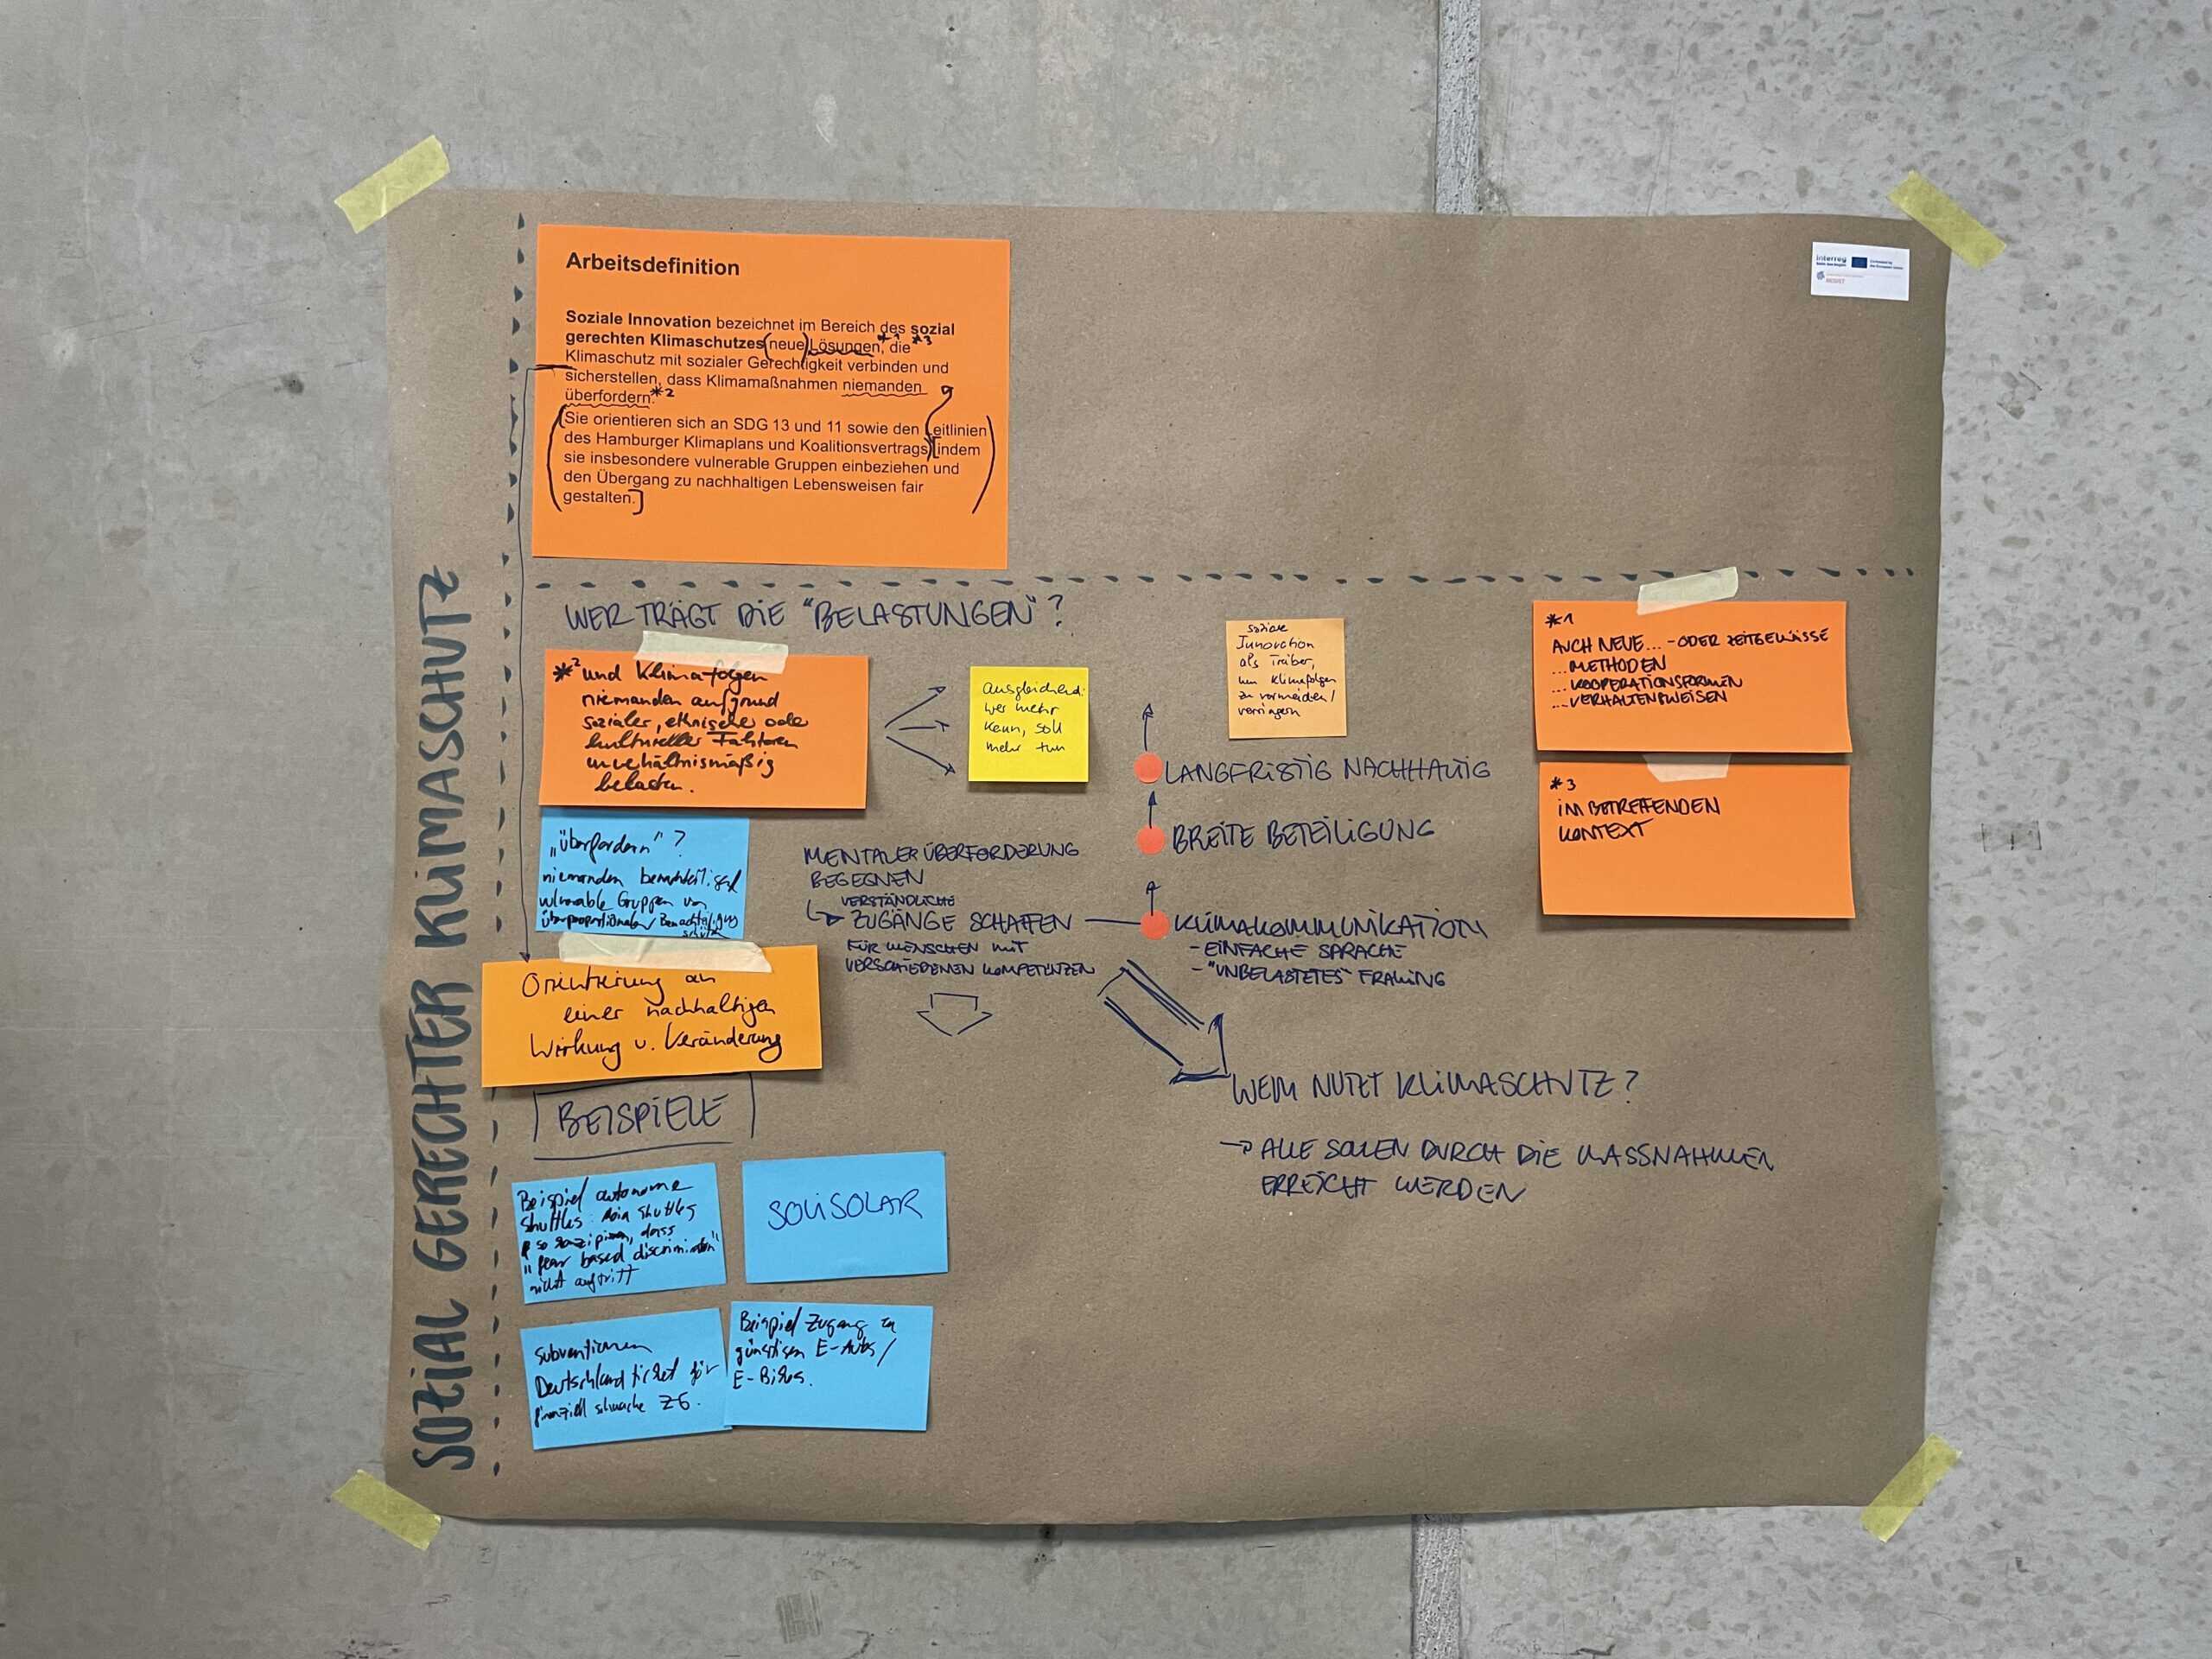 SOZIAL GERECHTER KLIMASCHUTZ
Arbeitsdefinition
Soziale Innovation bezeichnet im Bereich des sozial
gerechten Klimaschutzes (neue) Lösungen,*1 die *3
Klimaschutz mit sozialer Gerechtigkeit verbinden und
sicherstellen, dass Klimamaßnahmen niemanden
überfordern.*2
(Sie orientieren sich an SDG 13 und 11 sowie den Leitlinien
des Hamburger Klimaplans und Koalitionsvertrags) [indem
sie insbesondere vulnerable Gruppen einbeziehen und
den Übergang zu nachhaltigen Lebensweisen fair
gestalten.]
interreg
Co-funded by
the European Union
RESIST
WER TRÄGT DIE "BELASTUNGEN"?
*2 und Klimafolgen
niemanden aufgrund
sozialer, ethnischer oder
kultureller Faktoren
unverhältnismäßig
belasten.
ausgleichend:
wer mehr
kann, soll
mehr tun
soziale
Innovation
als Treiber,
um Klimafolgen
zu vermeiden/
verringern
*1
AUCH NEUE... - ODER ZEITGEMÄSSE
...METHODEN
...KOOPERATIONSFORMEN
...VERHALTENSWEISEN
*3
IM BETREFFENDEN
KONTEXT
LANGFRISTIG NACHHALTIG
BREITE BETEILIGUNG
KLIMAKOMMUNIKATION
- EINFACHE SPRACHE
- "UNBELASTETES" FRAMING
„überfordern"?
niemanden
vulnerable Gruppen vor
überproportionaler Benachteiligung
schützen
MENTALER ÜBERFORDERUNG
BEGEGNEN
VERSTÄNDLICHE
ZUGÄNGE SCHAFFEN
FÜR MENSCHEN MIT
VERSCHIEDENEN KOMPETENZEN
Orientierung an
einer nachhaltigen
Wirkung u. Veränderung
WEM NUTZT KLIMASCHUTZ?
→ ALLE SOLLEN DURCH DIE MASSNAHMEN
ERREICHT WERDEN
BEISPIELE
Beispiel autonome
Shuttles: Shuttles
so konzipieren, dass
"fear based discrimination"
nicht auftritt
SOLISOLAR
Subventionen
Deutschlandticket für
finanziell schwache ZG.
Beispiel Zugang zu
günstigen E-Autos/
E-Bikes.